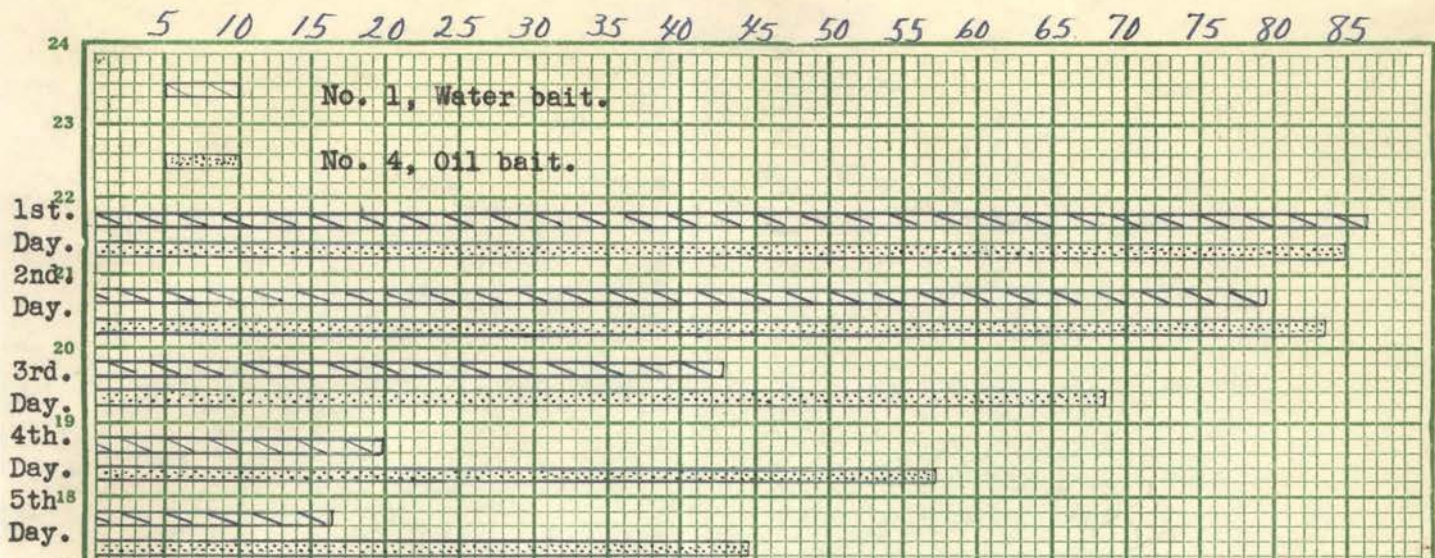 5 10 15 20 25 30 35 40 45 50 55 60 65 70 75 80 85
24
No. 1, Water bait.
23
No. 4, Oil bait.
22
1st.
Day.
21
2nd.
Day.
20
3rd.
Day.
19
4th.
Day.
18
5th
Day.